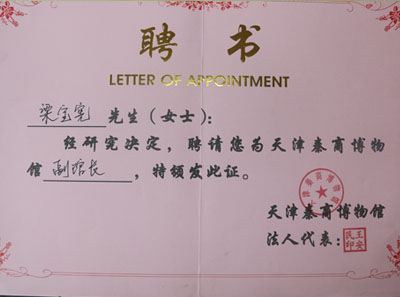 聘书
LETTER OF APPOINTMENT
梁宝宪先生（女士）：
经研究决定，聘请您为天津秦商博物
馆副馆长，特颁发此证。
天津秦商博物馆
法人代表：王安民印